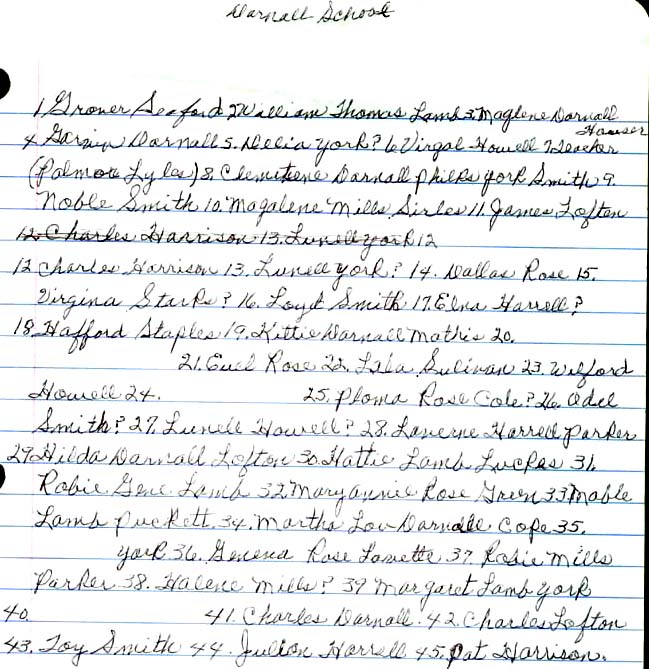 Darnall School
1 Groner Seaford 2 William Thomas Lamb 3. Maglene Darnall
Houser
4 Darnall 5. Delia York? 6 Virgal Howell 7. Teacher
(Palmote Lyles) 8. Clemitene Darnall Philps York Smith 9.
Noble Smith 10. Magalene Mills Sirles 11. James Loften
12. Charles Harrison 13. Lunell York 12
12 Charles Harrison 13. Lunell York? 14. Dallas Rose 15.
Virgina Starks? 16. Loyd Smith 17. Elna Harrell?
18. Hafford Staples 19. Kittie Darnall Mathis 20.
21. Euel Rose 22. Lila Sulivan 23. Wilford
Howell 24. 25. Ploma Rose Cole? 26. Odel
Smith? 27. Lunell Howell? 28. Laverne Harrell Parker
29. Hilda Darnall Lofton 30. Hattie Lamb Luckes 31.
Robie Gene Lamb 32. Maryannie Rose Green 33 Mable
Lamb Puckett. 34. Martha Lou Darnall Cope 35.
York 36. Genena Rose 37. Robie Mills
Parker 38. Halene Mills? 39 Margaret Lamb York
40. 41. Charles Darnall. 42. Charles Lofton
43. Toy Smith 44. Julion Harrell 45. Pat Harrison.